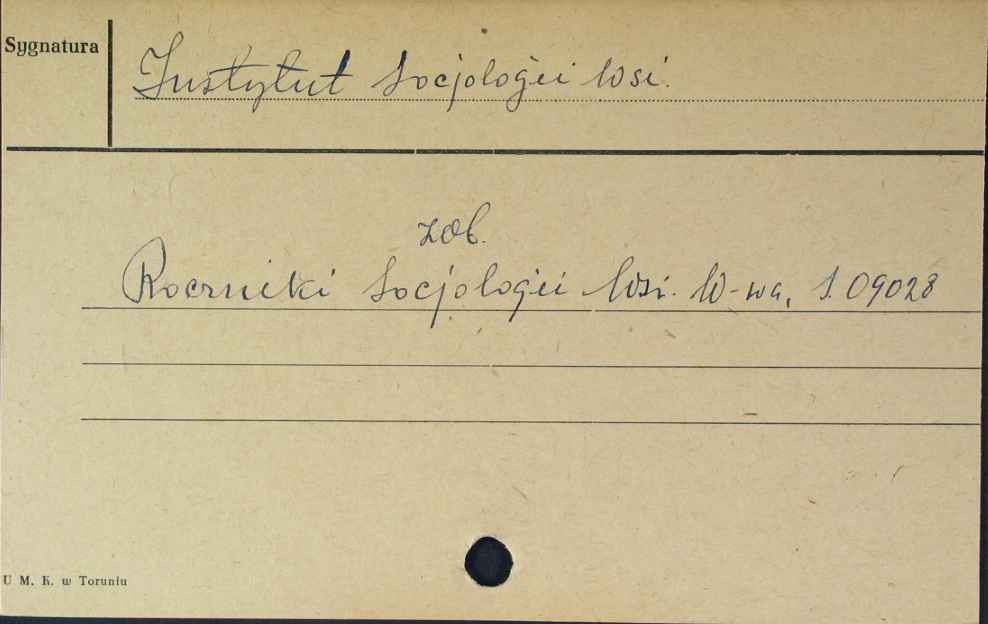 Sygnatura
Instytut Socjologii Wsi.
zob.
Roczniki Socjologii Wsi. W-wa, S. 09028
U M. K. w Toruniu